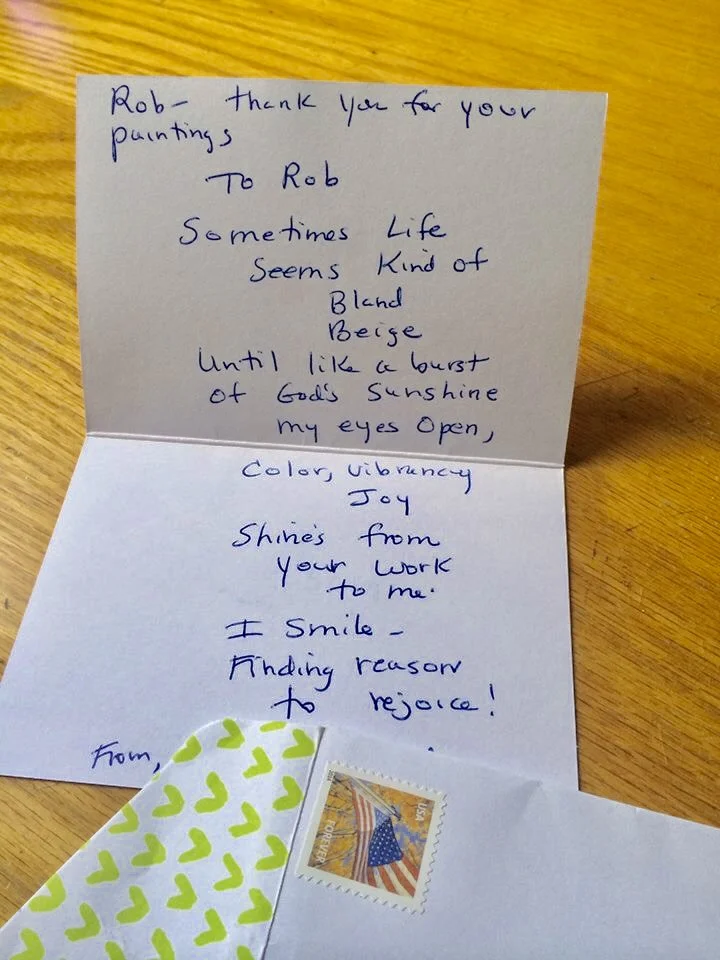 Rob- thank you for your
paintings
To Rob
Sometimes Life
Seems Kind of
Bland
Beige
Until like a burst
of God's Sunshine
my eyes Open,
Color, vibrancy
Joy
Shine's from
your work
to me.
I Smile -
Finding reason
to rejoice!
From,
USA
FOREVER